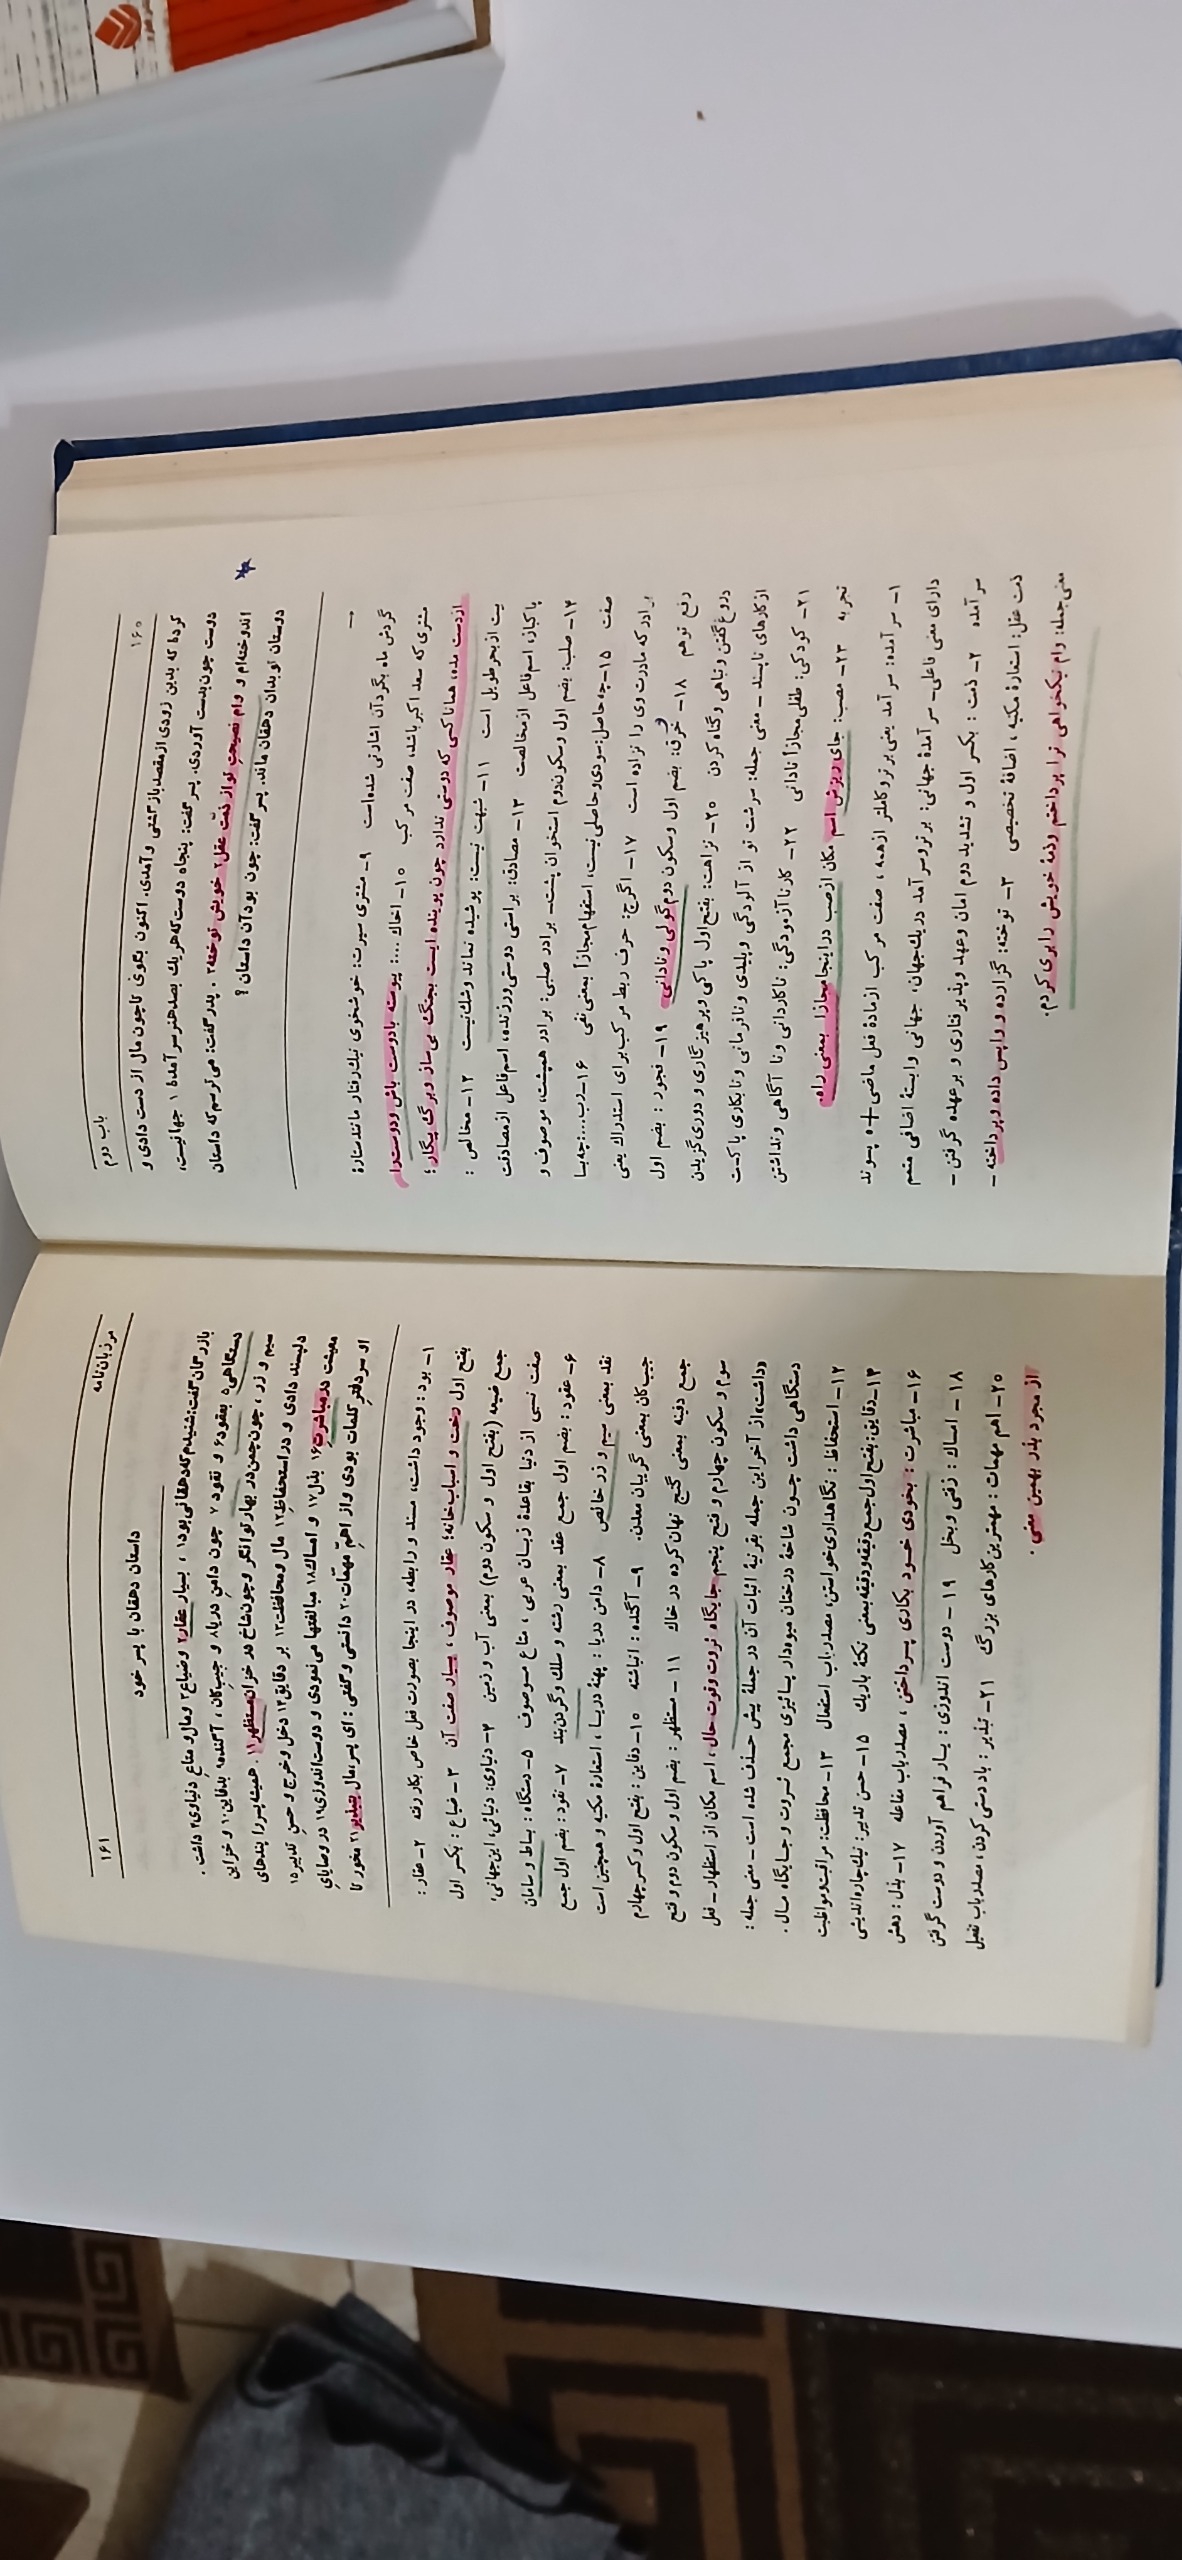 باب دوم
۱۶۰
کردهٔ که بدین زودی از مقصد بازگشتی و آمدی. اکنون بگوی تا چون مال از دست دادی و
دوست چون بدست آوردی. پسر گفت: پنجاه دوست که هر یک بصد هنر سرآمدهٔ ۱ جهانیست،
اندوخته‌ام و وام نصیحتِ تو از ذمّت عقل ۲ خویش توخته ۳. پدر گفت: می‌ترسم که داستان
دوستان تو بدان دهقان ماند. پسر گفت: چون بود آن داستان؟
←
گردش ماه بگرد آن اشارتی شده‌است ۹- مشتری سیرت: خوشخوی نیك‌رفتار مانند ستارهٔ
مشتری که سعد اکبر باشد، صفت مرکب ۱۰- اخاك ...: پیوسته با دوست باش و دوست را
از دست مده، همانا کسی که دوستی ندارد چون پوینده ایست بجنگ بی‌ساز و برگ پیکار؛
بیت از بحر طویل است ۱۱- شبهت نیست: پوشیده نماند و شك نیست ۱۲- مخالص:
پاکباز، اسم فاعل از مخالصت ۱۳- مصادق: براستی دوستی ورزنده، اسم فاعل از مصادقت
۱۴- صلب: بضم اول و سکون دوم استخوان پشت- برادر صلبی: برادر همپشت، موصوف و
صفت ۱۵- چه حاصل: سودی و حاصلی نیست، استفهام مجازاً بمعنی نفی ۱۶- رب...: چه بسا
برادر که مادرت وی را نزاده است ۱۷- اگرچ: حرف ربط مرکب برای استدراك یعنی
رفع توهم ۱۸- خرق: بضم اول و سکون دوم گولی و نادانی ۱۹- فجور: بضم اول
دروغ گفتن و تباهی و گناه کردن ۲۰- نزاهت: بفتح اول پاکی و پرهیزگاری و دوری گزیدن
از کارهای ناپسند - معنی جمله: سرشت تو از آلودگی و پلیدی و نافرمانی و نابکاری پاکست
۲۱- کودکی: طفلی مجازاً نادانی ۲۲- کارناآزمودگی: ناکاردانی و ناآگاهی و نداشتن
تجربه ۲۳- مصب: جای ریزش اسم مکان از صب دراینجا مجازاً بمعنی راه
۱- سرآمده: سرآمد یعنی برتر و کاملتر از همه، صفت مرکب از مادهٔ فعل ماضی + ه پسوند
دارای معنی فاعلی- سرآمدهٔ جهانی: برتر و سرآمد در یك جهان، جهانی وابستهٔ اضافی متمم
سرآمده ۲- ذمت: بکسر اول و تشدید دوم امان و عهد و پذیرفتاری و برعهده گرفتن -
ذمت عقل: استعارهٔ مکنیه، اضافهٔ تخصیصی ۳- توخته: گزارده و واپس داده و پرداخته -
معنی جمله: وام نیکخواهی ترا پرداختم و ذمهٔ خویش را بری کردم.
مرزبان‌نامه
۱۶۱
داستان دهقان با پسر خود
بازرگان گفت: شنیدم که دهقانی بود ۱، بسیار عقار ۲ و ضیاع ۳ و مال و متاعِ دنیاوی ۴ داشت.
دستگاهی ۵ بعقود ۶ و نقود ۷ چون دامنِ دریا ۸ و جیبِ کان، آگنده ۹ بدفاین ۱۰ و خزاین
سیم و زر، چون چمن در بهار توانگر و چون شاخ در خزان مستظهر ۱۱. همیشه پسر را پندهای
دلپسند دادی و در استحفاظِ ۱۲ مال و محافظت ۱۳ بر دقایق ۱۴ دخل و خرج و حسنِ تدبیر ۱۵
معیشت در مباشرتِ ۱۶ بذل ۱۷ و امساك ۱۸ مبالغتها می‌نمودی و دوست‌اندوزی ۱۹ در وصایایِ
او سردفترِ کلمات بودی و از اهمّ مهمّات ۲۰ دانستی و گفتی: ای پسر، مال بتبذیر ۲۱ مخور تا
۱- بود: وجود داشت، مسند و رابطه، در اینجا بصورت فعل خاص بکار رفته ۲- عقار:
بفتح اول رخت و اسباب خانه؛ عقار موصوف، بسیار صفت آن ۳- ضیاع: بکسر اول
جمع ضیعه (بفتح اول و سکون دوم) بمعنی آب و زمین ۴- دنیاوی: دنیائی، این‌جهانی،
صفت نسبی از دنیا بقاعدهٔ زبان عربی، متاع موصوف ۵- دستگاه: بساط و سامان
۶- عقود: بضم اول جمع عقد بمعنی رشته و سلك و گردن‌بند ۷- نقود: بضم اول جمع
نقد بمعنی سیم و زر خالص ۸- دامن دریا: پهنهٔ دریا، استعارهٔ مکنیه و همچنین است
جیب کان بمعنی گریبان معدن. ۹- آگنده: انباشته ۱۰- دفاین: بفتح اول و کسر چهارم
جمع دفینه بمعنی گنج نهان کرده در خاك ۱۱- مستظهر: بضم اول و سکون دوم و فتح
سوم و سکون چهارم و فتح پنجم جایگاه ثروت و قوت حال، اسم مکان از استظهار- فعل
«داشت» از آخر این جمله بقرینهٔ اثبات آن در جملهٔ پیش حذف شده است - معنی جمله:
دستگاهی داشت چون شاخهٔ درختان میوه‌دار پائیزی مجمع ثروت و جایگاه مال.
۱۲- استحفاظ: نگاهداری خواستن، مصدر باب استفعال ۱۳- محافظت: مراقبت و مواظبت
۱۴- دقایق: بفتح اول جمع دقیقه و دقیقه بمعنی نکتهٔ باریك ۱۵- حسن تدبیر: نیك چاره‌اندیشی
۱۶- مباشرت: بخودی خود بکاری پرداختن، مصدر باب مفاعله ۱۷- بذل: دهش
۱۸- امساك: زفتی و بخل ۱۹- دوست اندوزی: یار فراهم آوردن و دوست گرفتن
۲۰- اهم مهمات: مهمترین کارهای بزرگ ۲۱- تبذیر: بادستی کردن، مصدر باب تفعیل
از مجرد بذر بهمین معنی.